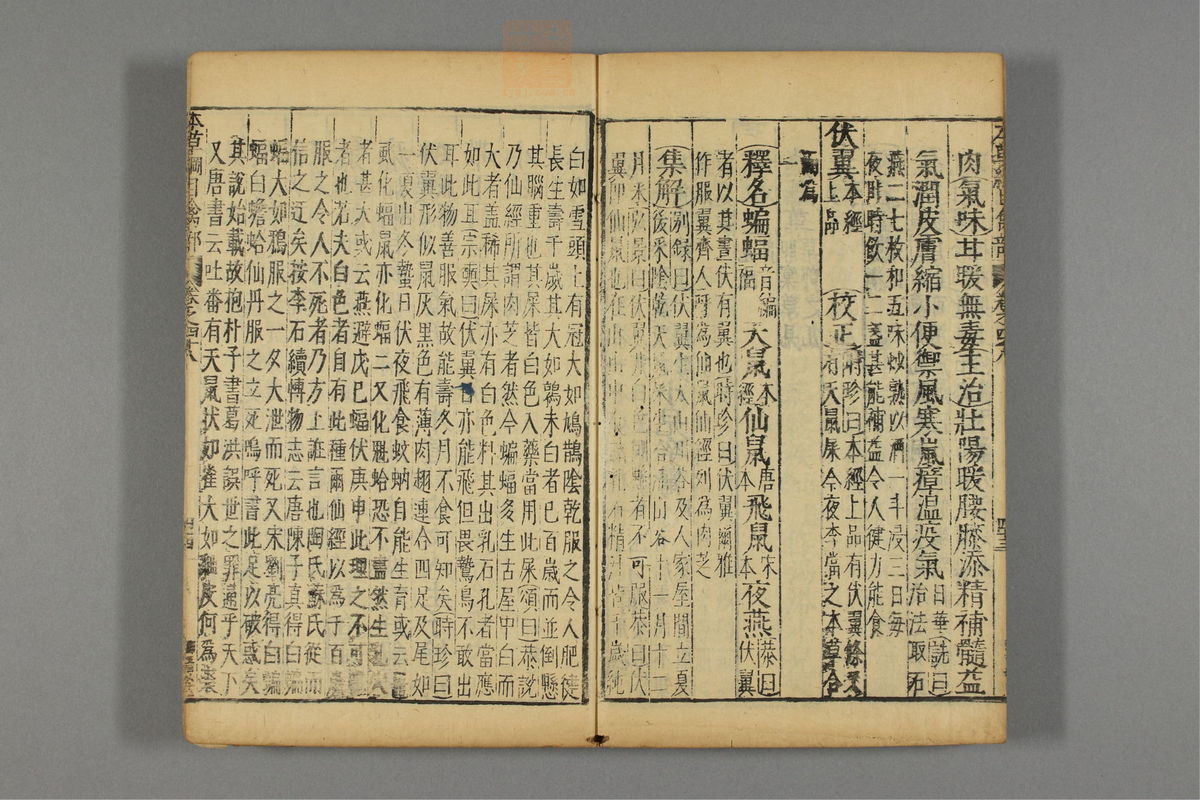 肉氣味甘暖無毒主治壯陽暖腰膝添精補髓益
氣潤皮膚縮小便禦風寒嵐瘴溫疫氣日華詵曰治法取石
燕二七枚和五味炒熟以酒一斗浸三日每
夜臥時飲一二盞甚能補益令人健力能食
伏翼本經上品校正時珍曰本經上品有伏翼條又有天鼠屎今夜本
釋名蝙蝠音編福天鼠本經仙鼠唐本飛鼠宋本夜燕恭曰伏翼
者以其晝伏有翼也時珍曰伏翼爾雅
作服翼齊人呼為仙鼠仙經列為肉芝
集解別錄曰伏翼生太山川谷及人家屋間立夏
後采陰乾天鼠屎生合浦山谷十一月十二
月采弘景曰伏翼非白色倒懸者不可服恭曰伏
翼即仙鼠也在山
白如雪頭上有冠大如鳩鵲陰乾服之令人肥健
長生壽千歲其大如鶉未白者已百歲而並倒懸
其腦重也其屎皆白色入藥當用此屎頌曰恭說
乃仙經所謂肉芝者然今蝙蝠多生古屋中白而
大者蓋稀其屎亦有白色料其出乳石孔者當應
耳此物善服氣故能壽冬月不食可知矣時珍曰
伏翼形似鼠灰黑色有薄肉翅連合四足及尾如
一夏出冬蟄日伏夜飛食蚊蚋自能生育或云
鼠化蝠鼠亦化蝠蝠又化魁蛤恐不盡然生
者甚大或云燕避戊己蝠伏庚申此理之不可
者也若夫白色者自有此種爾仙經以為千百
服之令人不死者乃方士誑言也陶氏蘇氏從而
信之迂矣按李石續博物志云唐陳子真得白蝙
蝠大如鴉服之一夕大泄而死又宋劉亮得白蝙
蝠白蟾蛤仙丹服之立死嗚呼書此足以破惑矣
其說始載故抱朴子書葛洪誤世之罪通乎天下
又唐書云吐番有天鼠狀如雀大如貓皮可為裘